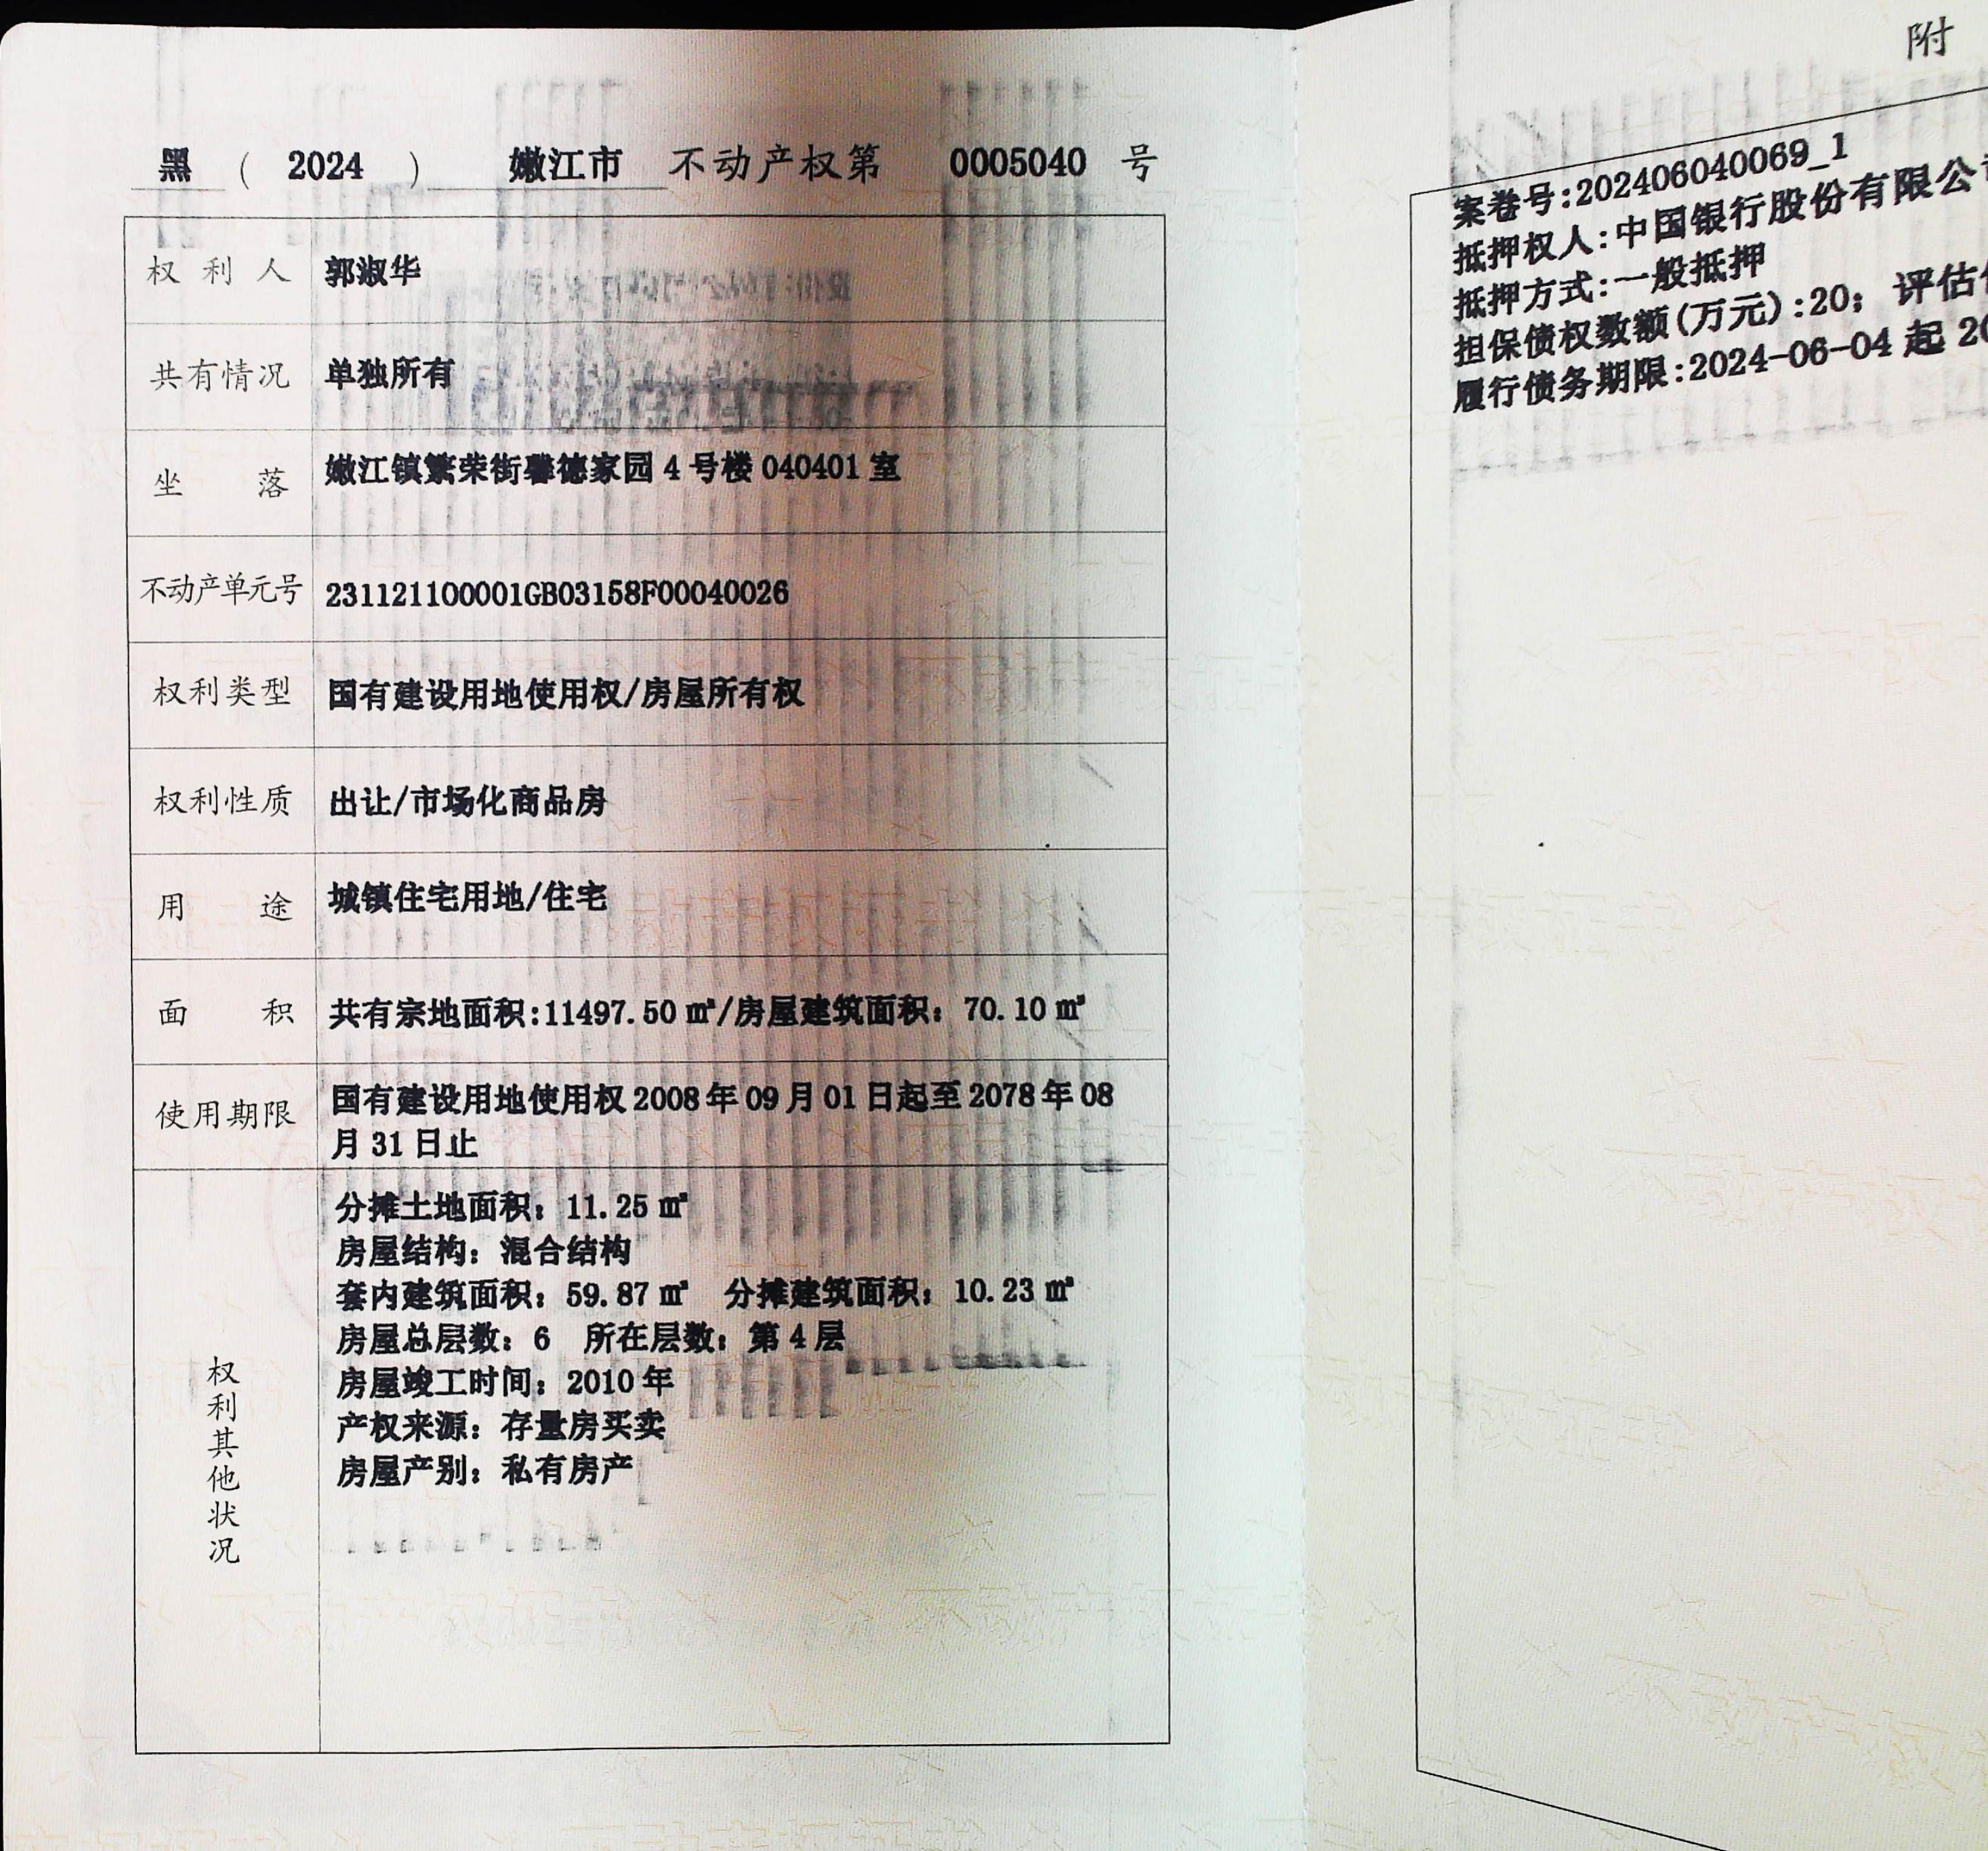 黑 ( 2024 ) 嫩江市 不动产权第 0005040 号
权利人 郭淑华
共有情况 单独所有
坐落 嫩江镇繁荣街馨德家园 4 号楼 040401 室
不动产单元号 231121100001GB03158F00040026
权利类型 国有建设用地使用权/房屋所有权
权利性质 出让/市场化商品房
用途 城镇住宅用地/住宅
面积 共有宗地面积:11497.50 ㎡/房屋建筑面积：70.10 ㎡
使用期限 国有建设用地使用权 2008 年 09 月 01 日起至 2078 年 08
月 31 日止
权利其他状况
分摊土地面积：11.25 ㎡
房屋结构：混合结构
套内建筑面积：59.87 ㎡ 分摊建筑面积：10.23 ㎡
房屋总层数：6 所在层数：第 4 层
房屋竣工时间：2010 年
产权来源：存量房买卖
房屋产别：私有房产
附
案卷号:202406040069_1
抵押权人:中国银行股份有限公
抵押方式:一般抵押
担保债权数额(万元):20；评估
履行债务期限:2024-06-04 起 20